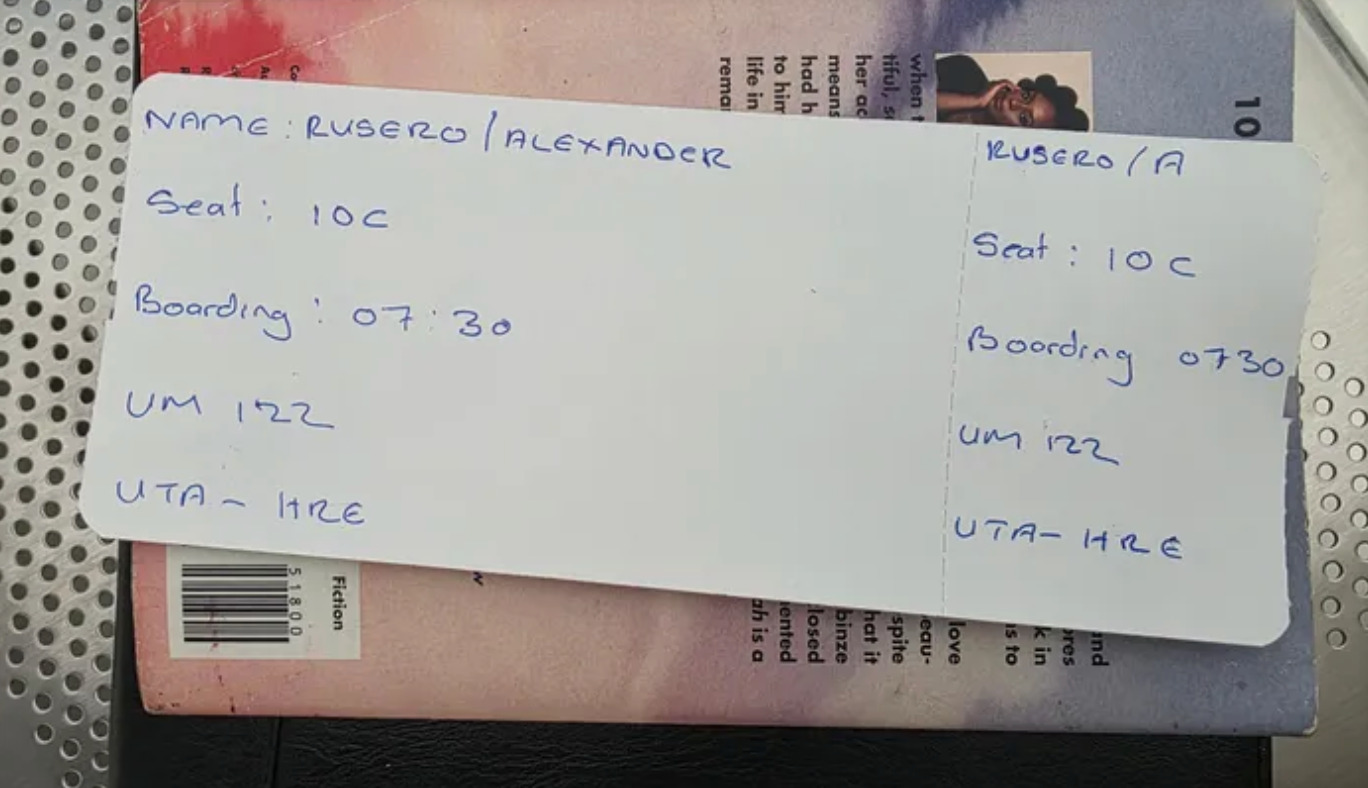 NAME : RUSERO / ALEXANDER
Seat : 10C
Boarding : 07:30
UM 122
UTA - HRE
RUSERO / A
Seat : 10C
Boarding 0730
UM 122
UTA - HRE
10
when
her ac
means
had h
to him
life in
remar
love
spite
hat it
binze
losed
ented
ah is a
and
ores
k in
as to
Fiction
51800